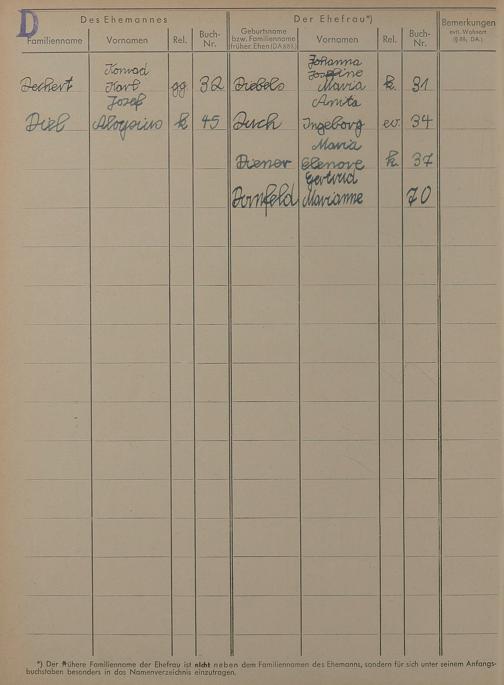 D
Des Ehemannes Der Ehefrau*) Bemerkungen
evtl. Wohnort
(§ 88, DA.)
Familienname Vornamen Rel. Buch-
Nr. Geburtsname
bzw. Familienname
früher. Ehen (DA § 85). Vornamen Rel. Buch-
Nr.
Konrad Johanna
Josefine
Dechert Karl gg 32 Diebels Maria k. 31
Josef Anita
Diel Aloysius k 45 Duch Ingeborg ev. 34
Maria
Diener Elenore k. 37
Gertrud
Dornfeld Marianne 70
*) Der frühere Familienname der Ehefrau ist nicht neben dem Familiennamen des Ehemanns, sondern für sich unter seinem Anfangs-
buchstaben besonders in das Namenverzeichnis einzutragen.